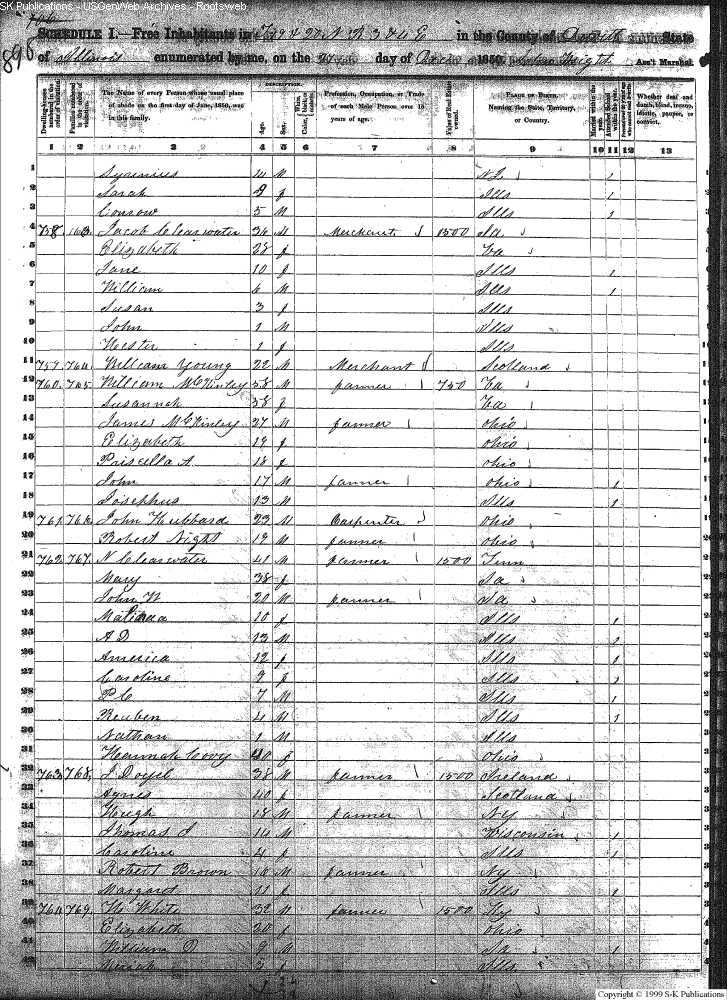 SK Publications - USGenWeb Archives - Rootsweb
SCHEDULE I.—Free Inhabitants in in the County of State
of Illinois enumerated by me, on the day of 1850. Ass't Marshal.
Dwelling-houses numbered in the order of visitation.
Families numbered in the order of visitation.
The Name of every Person whose usual place of abode on the first day of June, 1850, was in this family.
DESCRIPTION.
Age.
Sex.
Profession, Occupation, or Trade of each Male Person over 15 years of age.
Value of Real Estate owned.
PLACE OF BIRTH. Naming the State, Territory, or Country.
Married within the year.
Attended School within the year.
Whether deaf and dumb, blind, insane, idiotic, pauper, or convict.
1 2 3 4 5 6 7 8 9 10 11 12 13
1 M 1
2 Sarah 9 f Ills 1
3 5 M Ills 1
4 758 163 Jacob Clearwater 36 M Merchant 1500
5 Elizabeth 28 f
6 Jane 10 f Ills 1
7 William 6 M Ills 1
8 Susan 3 f Ills
9 John 1 M Ills
10 Hester 1 f Ills
11 759 764 William Young 22 M Merchant Scotland
12 760 765 William McKinley 58 M farmer 750 Va
13 Susannah 58 f Va
14 James McKinley 27 M farmer ohio
15 Elizabeth 19 f ohio
16 Priscella A. 18 f ohio
17 John 17 M farmer ohio 1
18 Josephus 13 M Ills 1
19 761 766 John Hubbard 23 M Carpenter ohio
20 Robert Night 19 M farmer ohio
21 762 767 N Clearwater 41 M farmer 1500 Tenn
22 Mary 38 f
23 John W 20 M farmer
24 Malinda 10 f Ills 1
25 A D 13 M Ills 1
26 America 12 f Ills 1
27 Caroline 9 f Ills 1
28 P C 7 M Ills 1
29 Reuben 4 M Ills 1
30 Nathan 1 M Ills
31 Hannah 40 f Ohio
32 763 768 J Doyel 38 M farmer 1500 Ireland
33 Agnes 40 f Scotland
34 Hugh 18 M farmer NY
35 Thomas J 14 M Wisconsin 1
36 Caroline 4 f Ills 1
37 Robert Brown 18 M farmer NY
38 Margaret 11 f Ills 1
39 764 769 White 32 M farmer 1500 Ky
40 Elizabeth 30 f ohio
41 William D 9 M 1
42 3 f Ills
Copyright © 1999 S-K Publications